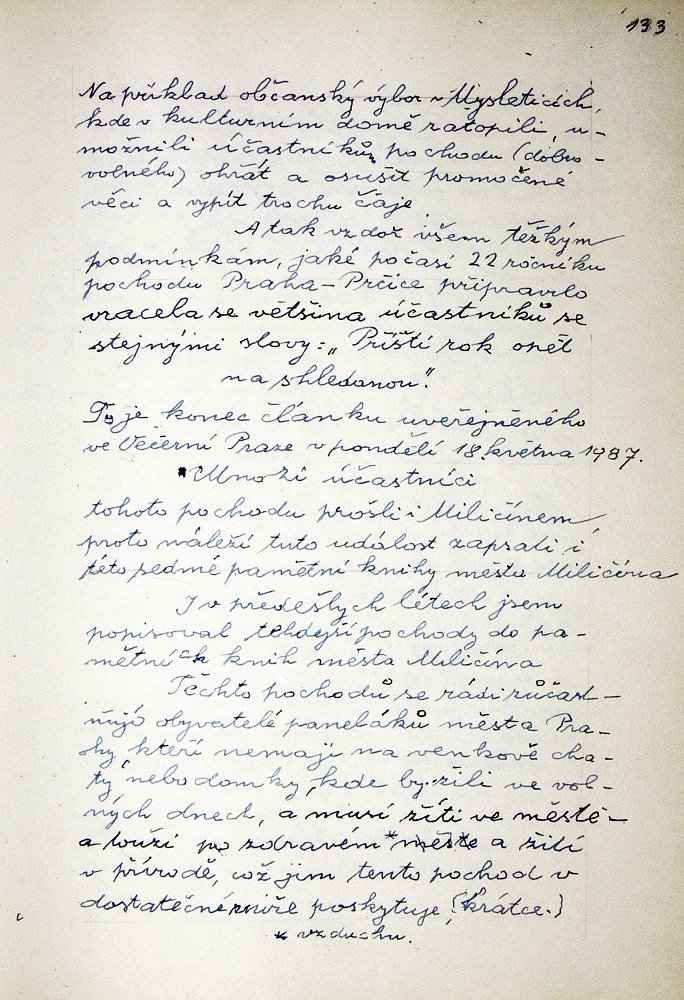 133
Na příklad občanský výbor v Mysleticích,
kde v kulturním domě zatopili, u-
možnili účastníků pochodu (dobro-
volného) ohřát a osušit promočené
věci a vypít trochu čaje
A tak vzdor všem těžkým
podmínkám, jaké počasí 22 ročníku
pochodu Praha-Prčice připravilo
vracela se většina účastníků se
stejnými slovy: „Příští rok opět
na shledanou".
To je konec článku uveřejněného
ve Večerní Praze v pondělí 18. května 1987.
Mnozí účastníci
tohoto pochodu prošli i Miličínem,
proto náleží tuto událost zapsati i
této sedmé pamětní knihy města Miličína
I v předešlých létech jsem
popisoval tehdejší pochody do pa-
mětních knih města Miličína
Těchto pochodů se rádi zůčast-
ňují obyvatelé paneláků města Pra-
hy, kteří nemají na venkově cha-
ty, nebo domky, kde by žili ve vol-
ných dnech, a musí žíti ve městě-
a touží po zdravém * městě a žití
v přírodě, což jim tento pochod v
dostatečné míře poskytuje, (krátce.)
* vzduchu.